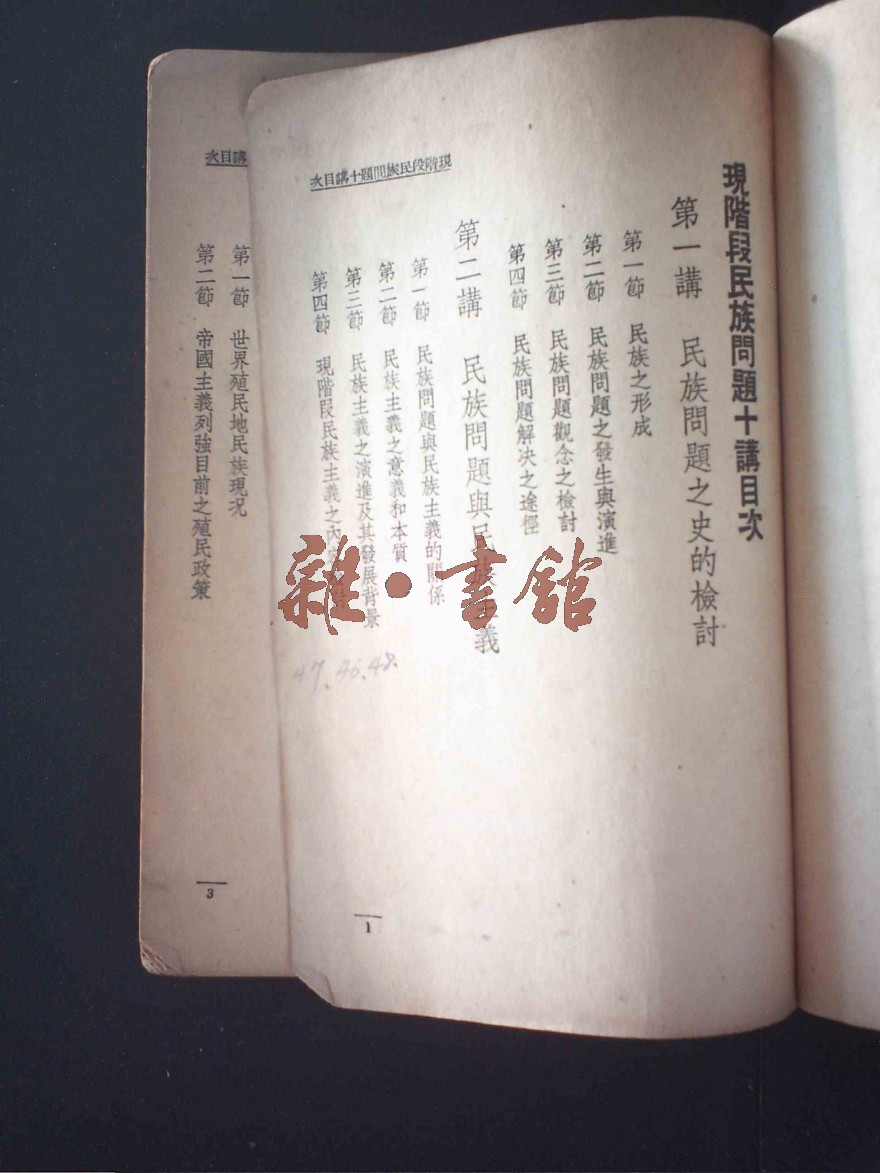 現階段民族問題十講目次
第一講 民族問題之史的檢討
第一節 民族之形成
第二節 民族問題之發生與演進
第三節 民族問題觀念之檢討
第四節 民族問題解決之途徑
第二講 民族問題與民族主義
第一節 民族問題與民族主義的關係
第二節 民族主義之意義和本質
第三節 民族主義之演進及其發展背景
第四節 現階段民族主義之內
現階段民族問題十講目次
1
47、46、48.
雜·書館
講目次
第一節 世界殖民地民族現況
第二節 帝國主義列強目前之殖民政策
3